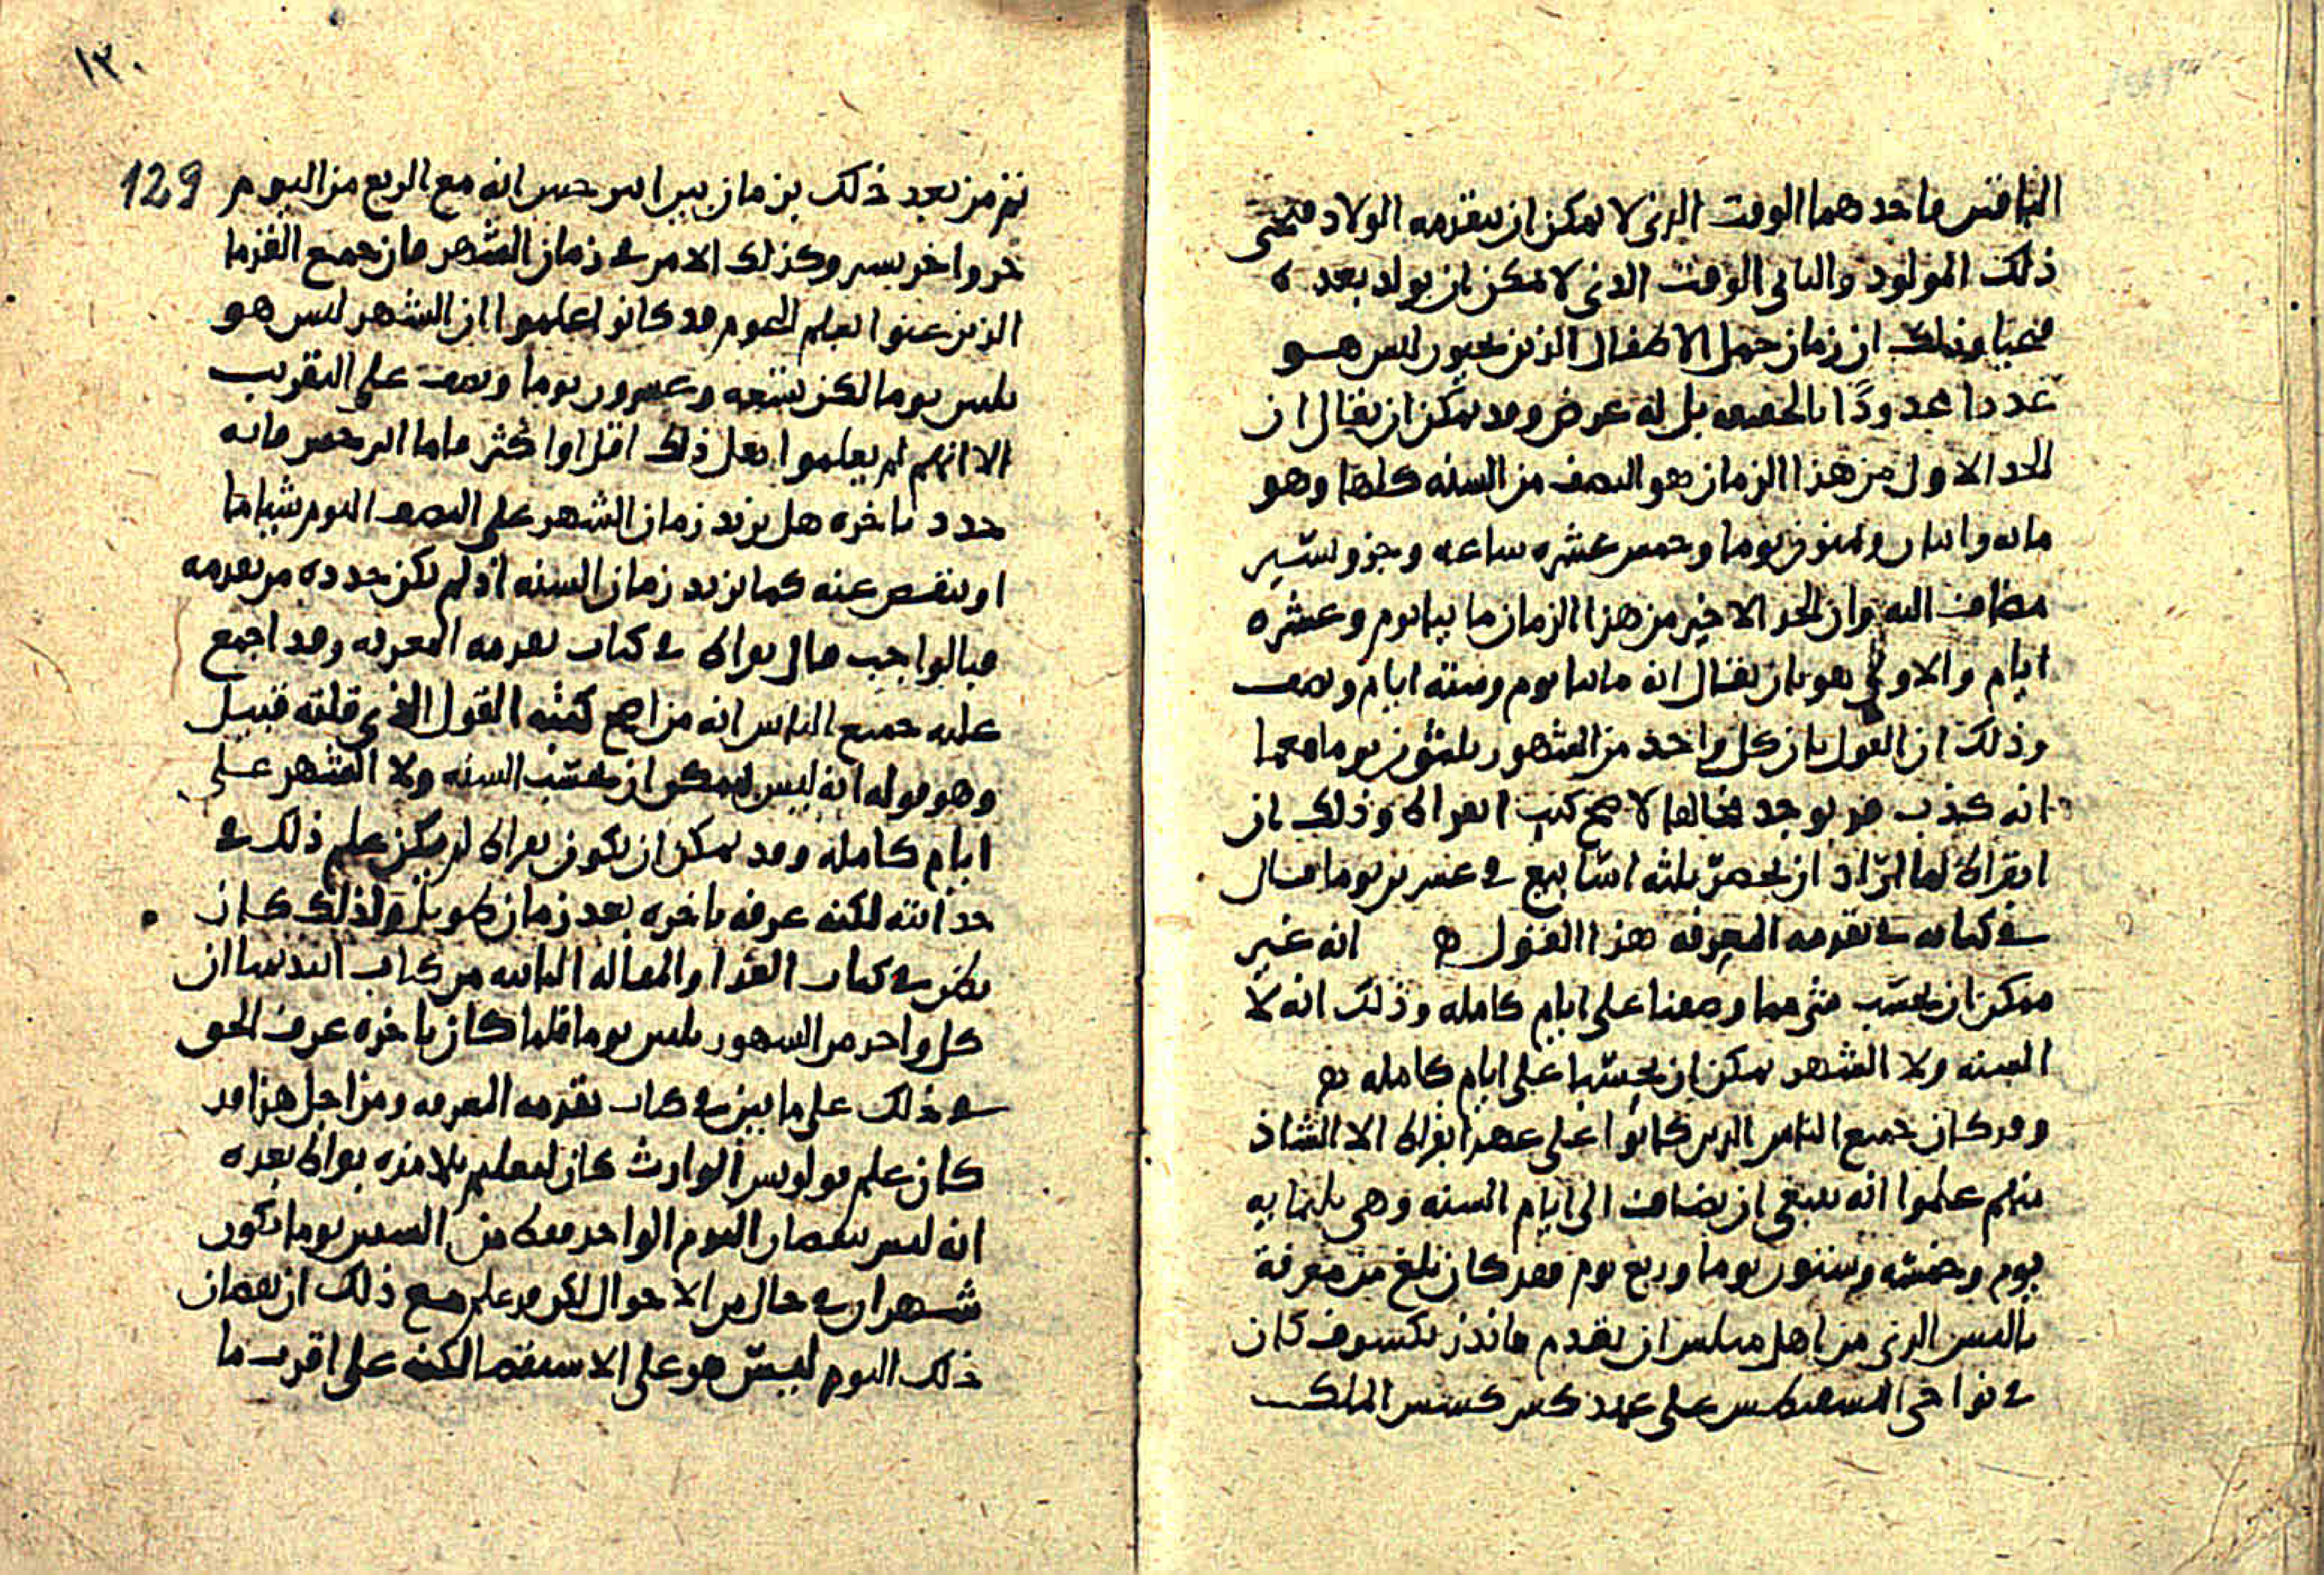 الباقين فاحدهما الوقت الذى لا يمكن ان يتقدمه الولاد فيحيى
ذلك المولود والثانى الوقت الذى لا يمكن ان يولد بعده
فيحيا وذلك ان زمان حمل الاطفال الذين يحيون ليس هو
عددا محدودًا بالحقيقه بل له عرض وقد يمكن ان يقال ان
الحد الاول من هذا الزمان هو النصف من السنه كلها وهو
مائه واثنان وثمنون يوما وخمس عشره ساعه وجزو يسير
مضاف اليه وان الحد الاخير من هذا الزمان مائتا يوم وعشره
ايام والاولى هو بان يقال انه مائتا يوم وسته ايام ونصف
وذلك ان القول بان كل واحد من الشهور ثلثون يوما معما
انه كذب قد يوجد مخالفا لاصح كتب ابقراط وذلك ان
ابقراط لما اراد ان يحصر ثلثه اسابيع فى عشرين يوما قال
فى كتابه فى تقدمه المعرفه هذا القول ه انه غير
ممكن ان يحسب شى مما وصفنا على ايام كامله وذلك انه لا
السنه ولا الشهر يمكن ان يحسبا على ايام كامله
وقد كان جميع الناس الذين كانوا على عهد ابقراط الا الشاذ
منهم علموا انه ينبغى ان يضاف الى ايام السنه وهى ثلثمايه
يوم وخمسه وستون يوما وربع يوم فقد كان بلغ من معرفة
ثاليس الذى من اهل ان تقدم فانذر بكسوف كان
فى نواحى على عهد الملك
ثم من بعد ذلك بزمان بين ابرخس انه مع الربع من اليوم 129
جزوا اخر يسير وكذلك الامر فى زمان الشهر فان جميع القدما
الذين عنوا بعلم النجوم قد كانوا علموا ان الشهر ليس هو
ثلثين يوما لكن تسعه وعشرون يوما ونصف على التقريب
الا انهم لم يعلموا لعل ذلك اقل او اكثر فاما ابرخس فانه
حدد باخره هل يزيد زمان الشهر على النصف اليوم شيا ما
او ينقص عنه كما يزيد زمان السنه اذ لم يكن حدده من تقدمه
فبالواجب قال بقراط فى كتاب تقدمه المعرفه وقد اجمع
عليه جميع الناس انه من اصح كتبه القول الذى قلته قبيل
وهو قوله انه ليس يمكن ان تحسب السنه ولا الشهر على
ايام كامله وقد يمكن ان يكون بقراط لم يكن علم ذلك فى
حداثته لكنه عرفه باخره بعد زمان طويل ولذلك كان
يظن فى كتاب الغذا والمقاله الثانيه من كتاب ان
كل واحد من الشهور ثلثين يوما فلما كان باخره عرف الحق
فى ذلك على ما بين فى كتاب تقدمه المعرفه ومن اجل هذا قد
كان علم فولوبس الوارث كان لمعلم تلامذه بقراط بعده
انه ليس بنقصان اليوم الواحد فقط من الستين يوما تكون
شهران فى حال من الاحوال لكن قد علم مع ذلك ان نقصان
ذلك اليوم ليس هو على الاستقصا لكنه على اقرب ما
١٣٠